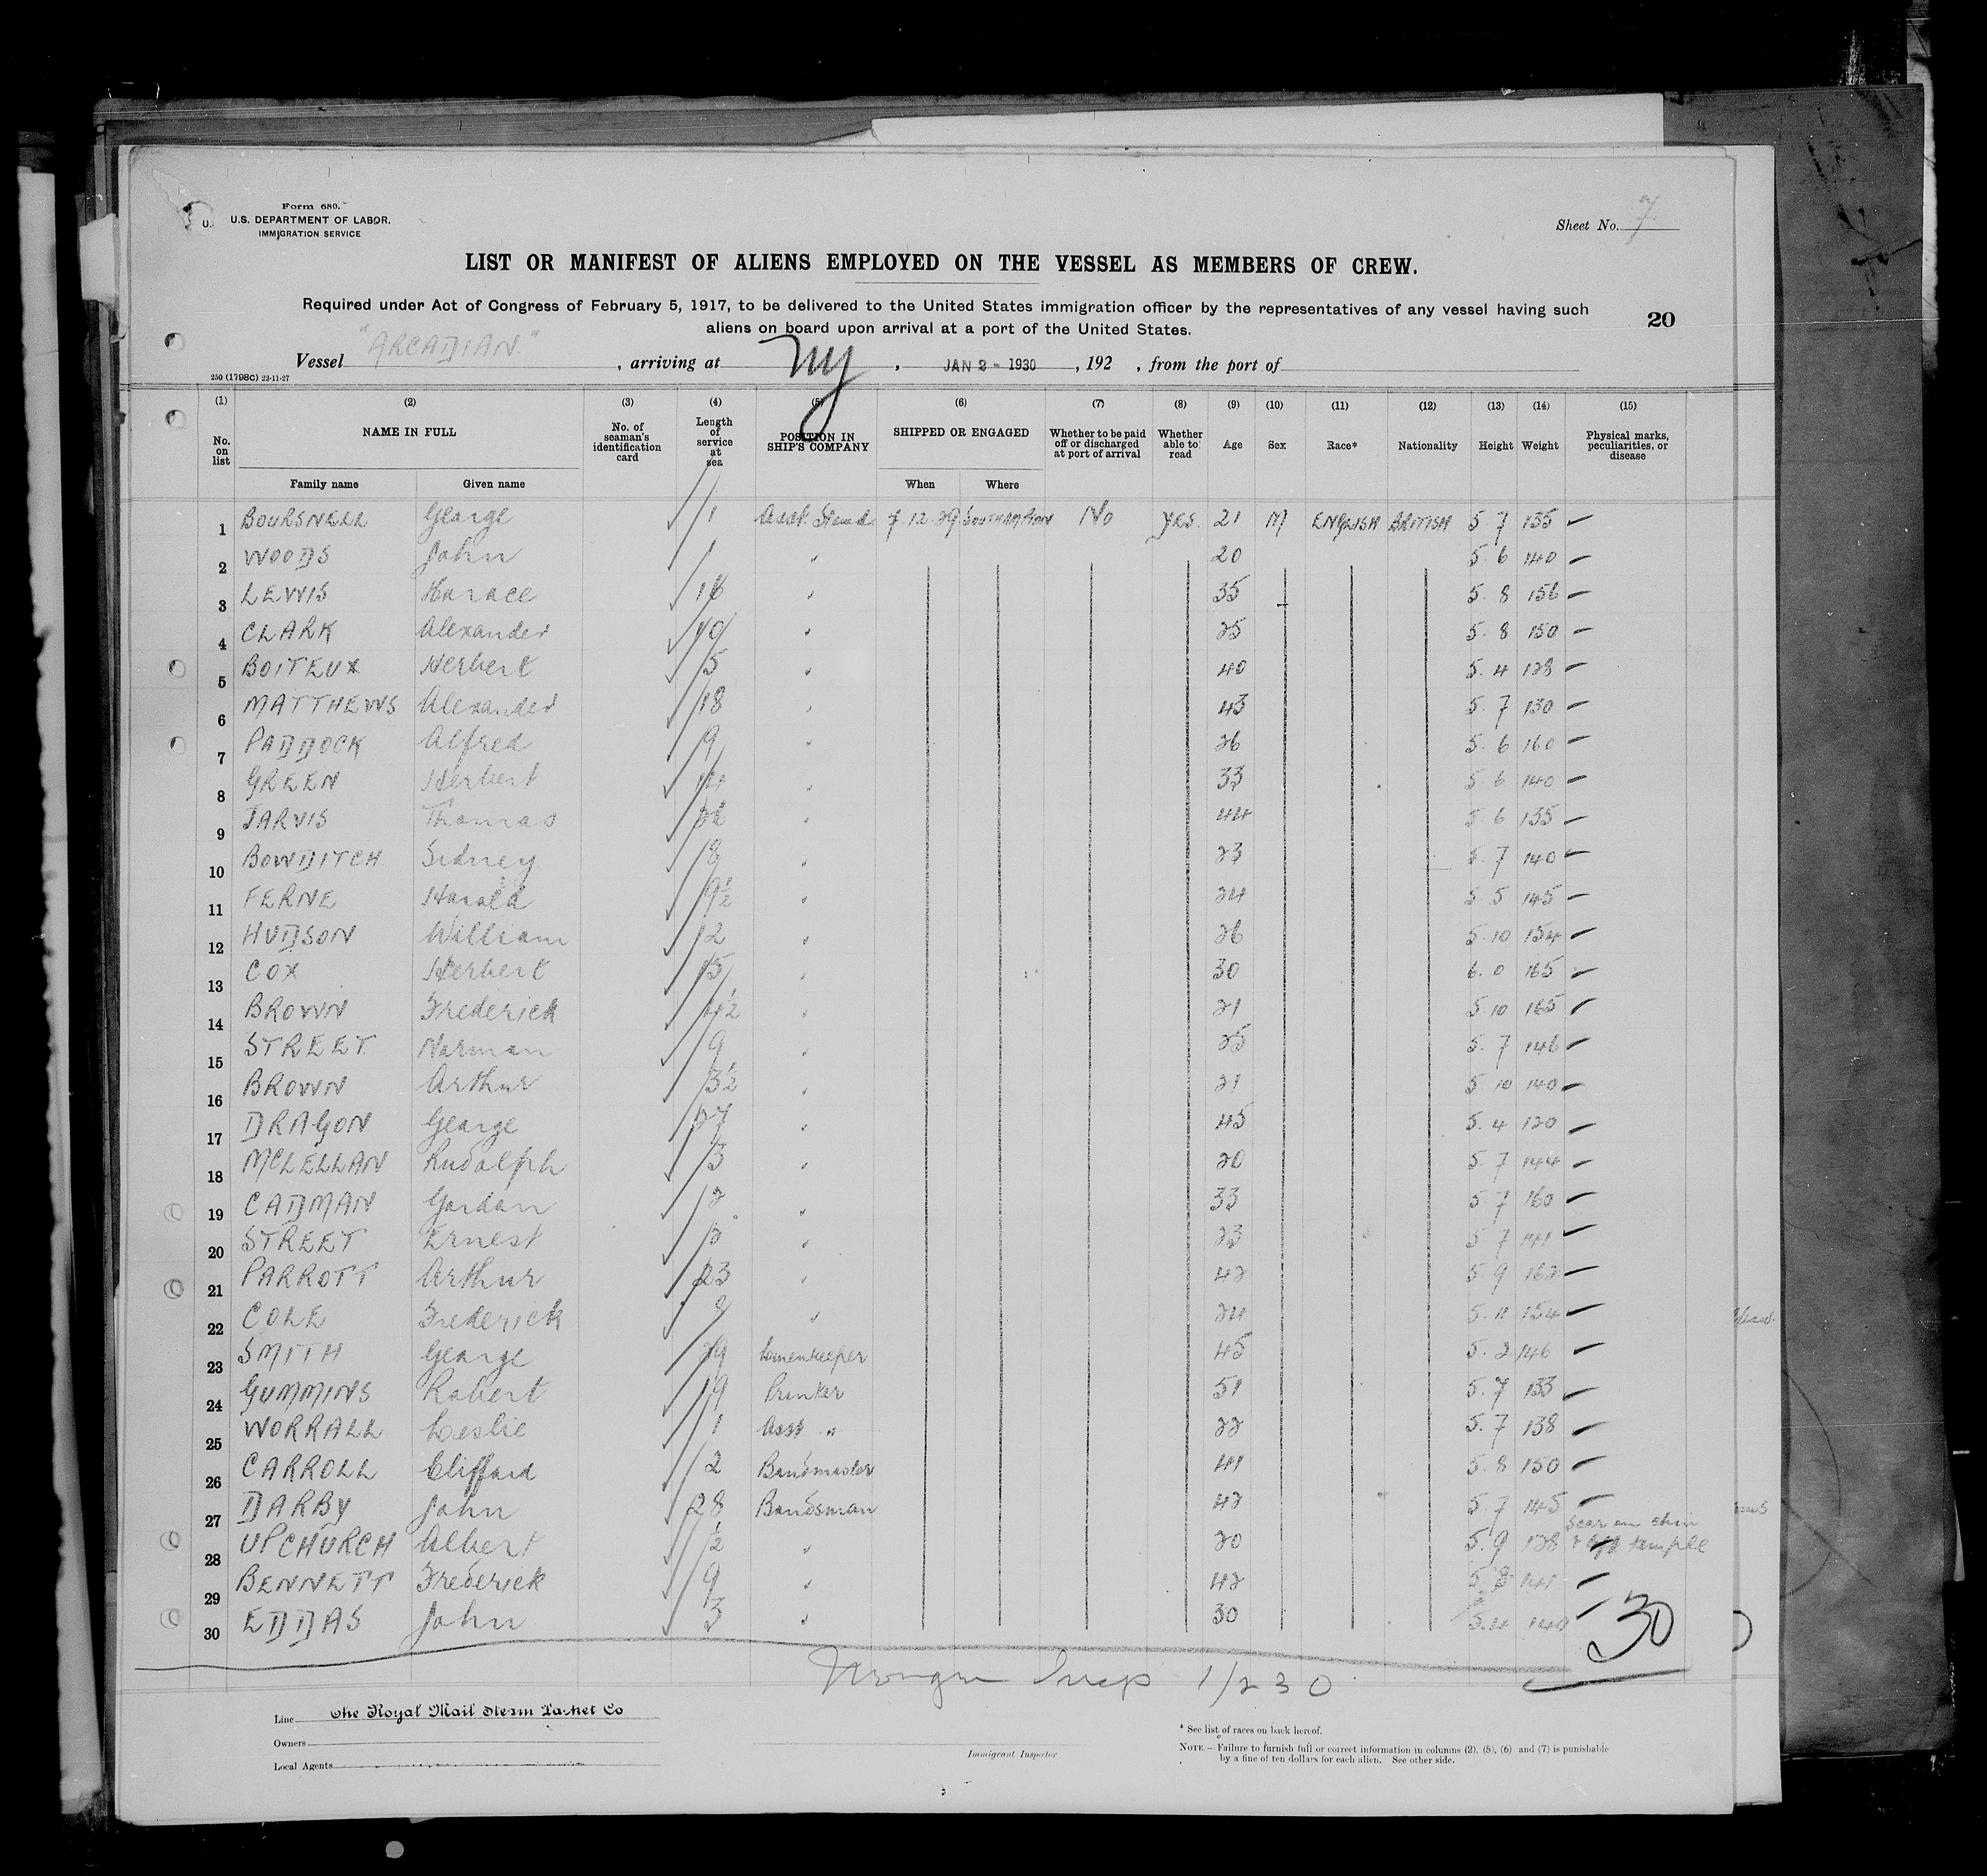 Form 680.
U.S. DEPARTMENT OF LABOR.
IMMIGRATION SERVICE
Sheet No. 7
LIST OR MANIFEST OF ALIENS EMPLOYED ON THE VESSEL AS MEMBERS OF CREW.
Required under Act of Congress of February 5, 1917, to be delivered to the United States immigration officer by the representatives of any vessel having such
aliens on board upon arrival at a port of the United States.
20
Vessel "ARCADIAN." , arriving at NY , JAN 2 - 1930 , 192 , from the port of
250 (1798C) 22-11-27
(1) (2) (3) (4) (5) (6) (7) (8) (9) (10) (11) (12) (13) (14) (15)
No. on list NAME IN FULL No. of seaman's identification card Length of service at sea POSITION IN SHIP'S COMPANY SHIPPED OR ENGAGED Whether to be paid off or discharged at port of arrival Whether able to read Age Sex Race* Nationality Height Weight Physical marks, peculiarities, or disease
Family name Given name When Where
1 BOURSNELL George 1 Asst. Stewd. 7.12.29 SOUTHAMPTON No YES. 21 M ENGLISH BRITISH 5 7 135
2 WOODS John 1 " 20 5. 6 140
3 LEWIS Horace " 35 5. 8 156
4 CLARK Alexander 10 " 25 5. 8 150
5 BOITEUX Herbert 5 " 40 5. 4 128
6 MATTHEWS Alexander 18 " 43 5. 7 130
7 PADDOCK Alfred 9 " 26 5. 6 160
8 GREEN Herbert 14 " 33 5 6 140
9 JARVIS Thomas " 44 5. 6 135
10 BOWDITCH Sidney 8 " 23 5. 7 140
11 FERNE Harold 9½ " 24 5 5 145
12 HUDSON William 2 " 26 5. 10 154
13 COX Herbert 15 " 30 6. 0 165
14 BROWN Frederick 4½ " 21 5. 10 165
15 STREET Norman 9 " 25 5. 7 146
16 BROWN Arthur 3½ " 21 5 10 140
17 DRAGON George 27 " 45 5. 4 120
18 MCLELLAN Rudolph 3 " 20 5. 7 144
19 CADMAN Gordon 2 " 33 5 7 160
20 STREET Ernest " 23 5 7 141
21 PARROTT Arthur 23 " 42 5. 9 162
22 COLE Frederick 8 " 24 5. 11 154
23 SMITH George 29 Linenkeeper 45 5. 2 146
24 GUMMINS Robert 19 Printer 51 5. 7 133
25 WORRALL Leslie 1 Asst " 22 5. 7 138
26 CARROLL Clifford 2 Bandmaster 41 5. 8 150
27 DARBY John 28 Bandsman 42 5 7 145
28 UPCHURCH Albert ½ " 20 5. 9 128 Scar on chin & left temple
29 BENNETT Frederick 9 " 42 5. 8 141
30 EDDAS John 3 " 30 5.4 140
30
Insp 1/2 30
Line The Royal Mail Steam Packet Co
Owners
Local Agents
Immigrant Inspector
* See list of races on back hereof.
NOTE.—Failure to furnish full or correct information in columns (2), (5), (6) and (7) is punishable
by a fine of ten dollars for each alien. See other side.